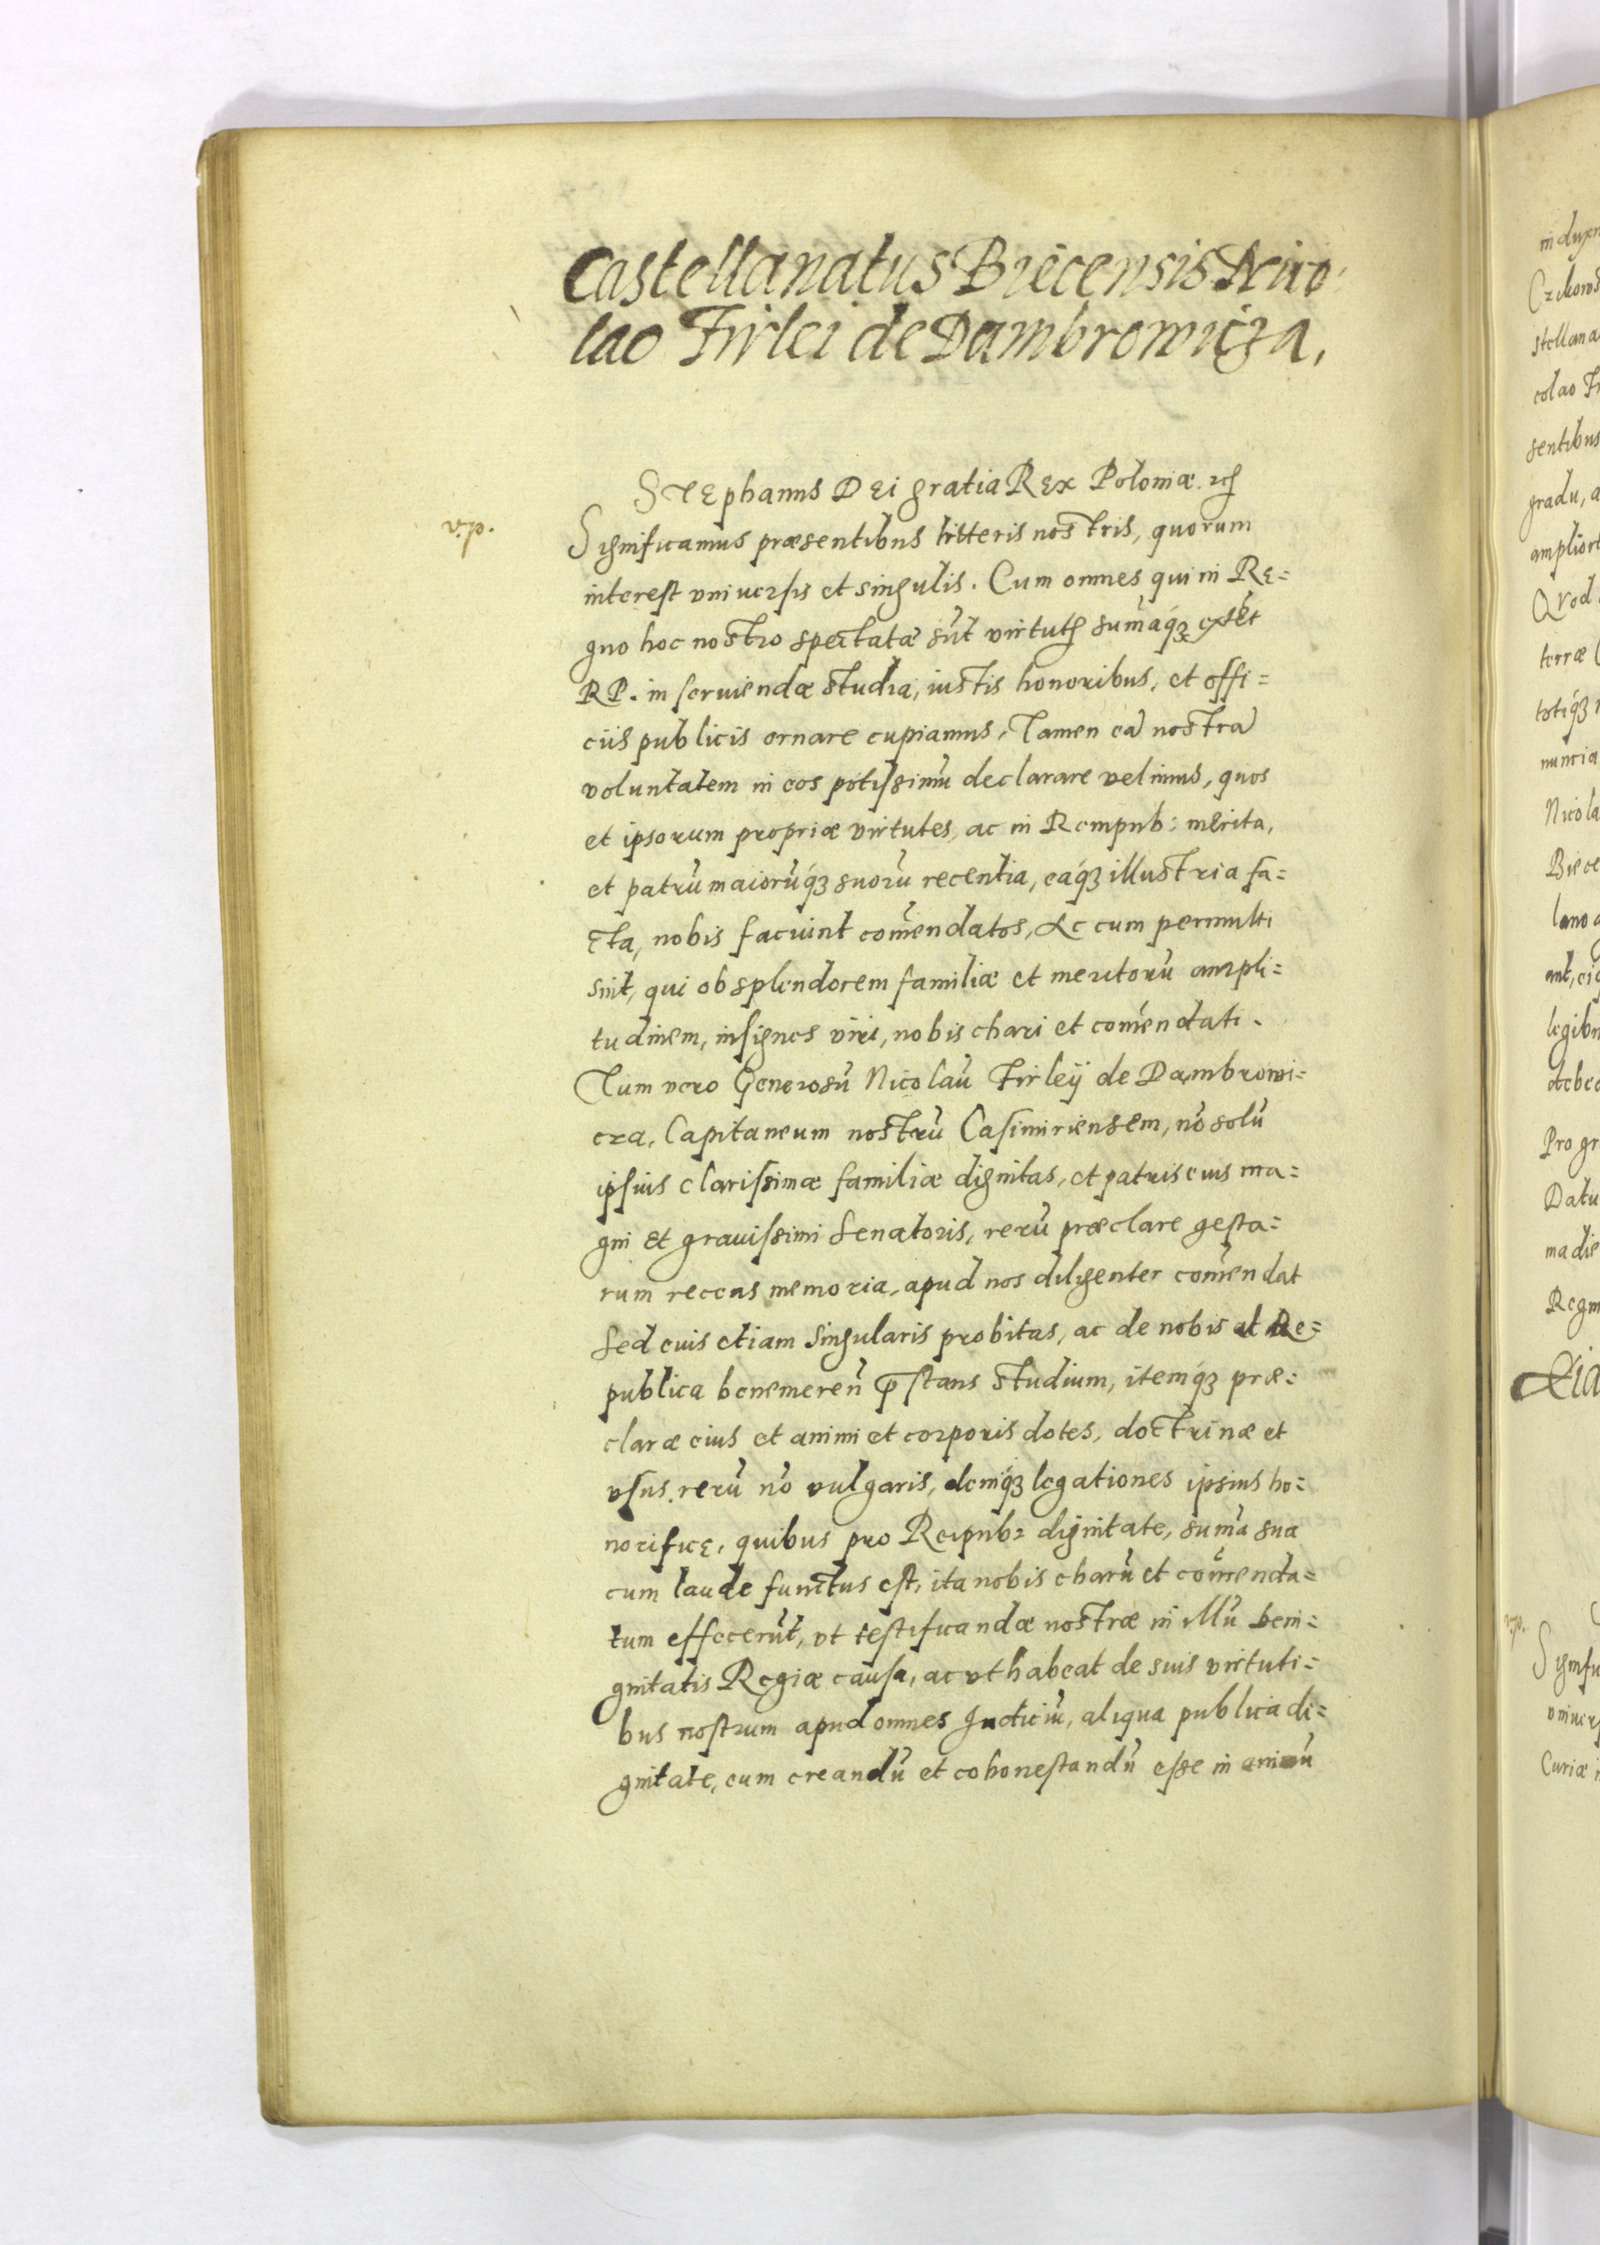 Castellanatus Biecensis Nico-
lao Firlei de Dambrowicza,
STEphanus DEi gratia REx Poloniæ
Significamus præsentibus litteris nostris, quorum
interest vniuersis et singulis. Cum omnes qui in RE=
gno hoc nostro spectatæ sūt virtutis sumāq́ʒ
RP. inseruiendæ studia, iustis honoribus, et offi=
ciis publicis ornare cupiamus, Tamen eā nostrā
voluntatem in eos potissimū declarare velimus, quos
et ipsorum propriæ virtutes, ac in Rempub: merita,
et patrū maiorūq́ʒ suorū recentia, eaq́ʒ illustria fa=
cta, nobis faciunt com̄endatos, Ac cum permulti
sint, qui ob splendorem familiæ et meritorū ampli=
tudinem, insignes viri, nobis chari et com̄endati.
Tum vero Generosū Nicolaū Firleÿ de Dambrowi=
cza, Capitaneum nostrū Casimiriensem, nō solū
ipsius clarissimæ familiæ dignitas, et patris eius ma=
gni et grauissimi Senatoris, rerū præclare gesta=
rum recens memoria, apud nos diligenter com̄endat
Sed eius etiam singularis probitas, ac de nobis at Re=
publica benemeren̄ p̄stans studium, itemq́ʒ præ=
claræ eius et animi et corporis dotes, doctrinæ et
vsus rerū nō vulgaris, demq́ʒ legationes ipsius ho=
norificę, quibus pro Reipub: dignitate, sum̄a sua
cum laude functus est, ita nobis charū et com̄enda=
tum effecerūt, vt testificandæ nostræ in illū beni=
gnitatis Regiæ causa, ac vt habeat de suis virtuti=
bus nostrum apud omnes Iudiciū, aliqua publica di=
gnitate, eum creandū et cohonestandū esse in animū
in duxe
stellana
colao Fi
sentibus
gradu, a
ampliori
Quod
terræ
totiq́ʒ
nuncia
Nicola
Biece
legibu
debe
Pro gr
Datu
ma die
Regn
Signifi
vniuers
Curiæ